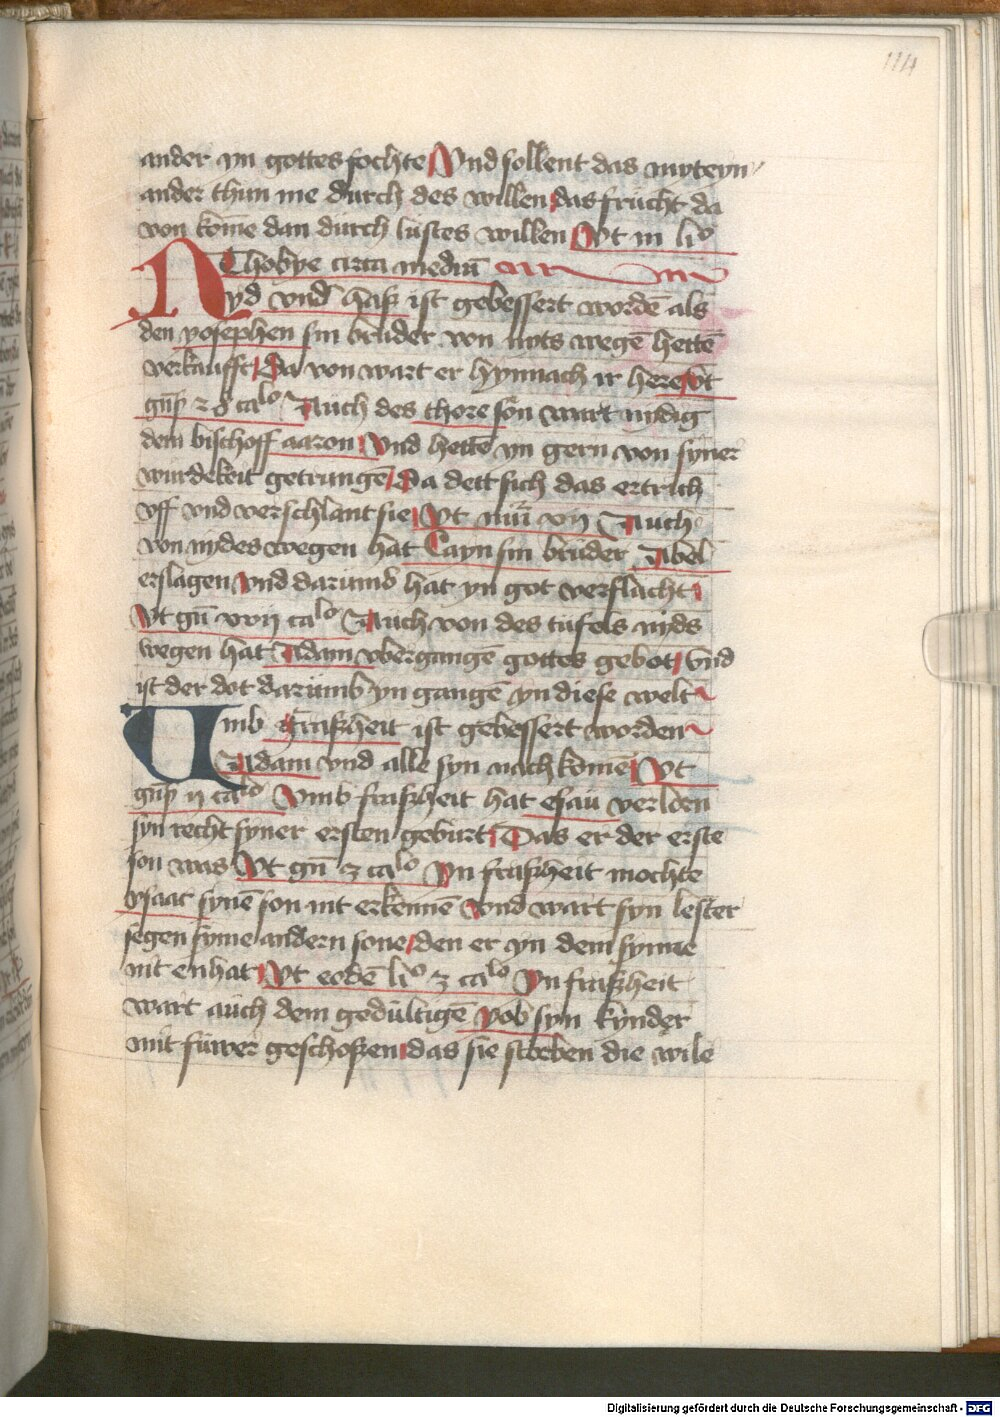 114
ander yn gottes fochte Vnd sollent das myteyn
ander thun me durch des willen das frücht da
von kōme dan durch lustes willen Vt in liº
Thobye circa mediū
Nyd vnd haß ist gebessert wordē als
den yosephen sin bruder von nyts wegē hettē
verkaufft Da von wart er hynnach ir here Vt
gn̄ß ca lº Auch des thore son wart nydig
dem bischoff aaron Vnd hette yn gern von syner
wirdekeit getrungē Da dett sich das ertrich
vff vnd verschlant sie Vt nūi xvj Auch
von nydes wegen hat Cayn sin brüder Abel
erslagen Vnd darumb hat yn got verflücht
Vt gn̄ ca lº Auch von des tufels nyds
wegen hat Adam vbergangē gottes gebot Vnd
ist der dot darümb yn gangē yn diese welt
Vmb fraßheit ist gebessert worden
Adam vnd alle syn nachkomē Vt
gn̄ß ij ca lº Vmb fraßheit hat esau verlorn
syn recht syner ersten geburt Das er der erste
son was Vt gn̄ z ca lº Yn fraßheit mochte
ysaac synē son nit erkennē Vnd wart syn lester
segen syme andern sone den er yn dem synne
nit enhat Vt eodē liº z ca lº Yn fraßheit
wart auch dem gedültigē yob syn kynder
mit füwer geschoßen das sie storben die wile
Digitalisierung gefördert durch die Deutsche Forschungsgemeinschaft - DFG